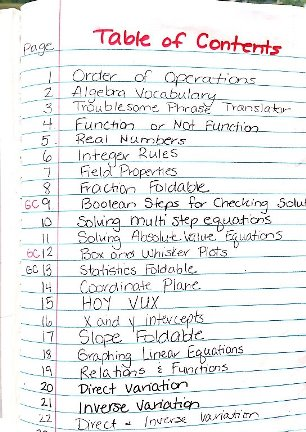 Table of Contents
Page
1 Order of Operations
2 Algebra Vocabulary
3 Troublesome Phrase Translator
4 Function or Not Function
5 Real Numbers
6 Integer Rules
7 Field Properties
8 Fraction Foldable
GC 9 Boolean Steps for Checking Solut
10 Solving multi step equations
11 Solving Absolute Value Equations
GC 12 Box and Whisker Plots
GC 13 Statistics Foldable
14 Coordinate Plane
15 HOY VUX
16 X and y intercepts
17 Slope Foldable
18 Graphing Linear Equations
19 Relations & Functions
20 Direct Variation
21 Inverse Variation
22 Direct & Inverse Variation